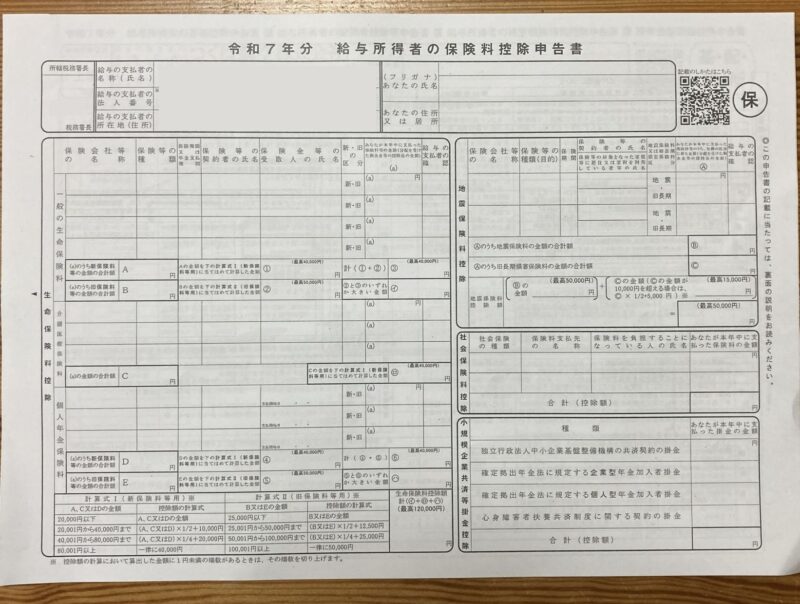 令和7年分 給与所得者の保険料控除申告書
記載のしかたはこちら
保
所轄税務署長
税務署長
給与の支払者の
名称(氏名)
給与の支払者の
法人番号
給与の支払者の
所在地(住所)
(フリガナ)
あなたの氏名
あなたの住所
又は居所
◎この申告書の記載に当たっては、裏面の説明をお読みください。
生命保険料控除
一般の生命保険料
保険会社等
の名称
保険等の
種類
保険等の
契約者の氏名
保険金等の
受取人の氏名
新・旧
の区分
給与の
支払者の
確認
(a) 円
新・旧
(a)
新・旧
(a)
新・旧
(a)
新・旧
(a)のうち新保険料
等の金額の合計額
A
円
Aの金額を下の計算式Ⅰ(新保険
料等用)に当てはめて計算した金額
①
(最高40,000円)
円
計(①+②)
③
(最高40,000円)
円
(a)のうち旧保険料
等の金額の合計額
B
円
Bの金額を下の計算式Ⅱ(旧保険
料等用)に当てはめて計算した金額
②
(最高50,000円)
円
②と③のいずれ
か大きい金額
㋑
円
介護医療保険料
(a) 円
(a)
(a)の金額の合計額
C
円
Cの金額を下の計算式Ⅰ(新保険
料等用)に当てはめて計算した金額
㋺
(最高40,000円)
円
個人年金保険料
支払開始日
(a) 円
新・旧
支払開始日
(a)
新・旧
支払開始日
(a)
新・旧
(a)のうち新保険料
等の金額の合計額
D
円
Dの金額を下の計算式Ⅰ(新保険
料等用)に当てはめて計算した金額
④
(最高40,000円)
円
計(④+⑤)
⑥
(最高40,000円)
円
(a)のうち旧保険料
等の金額の合計額
E
円
Eの金額を下の計算式Ⅱ(旧保険
料等用)に当てはめて計算した金額
⑤
(最高50,000円)
円
⑤と⑥のいずれ
か大きい金額
㋩
円
計算式Ⅰ(新保険料等用)※
計算式Ⅱ(旧保険料等用)※
A、C又はDの金額 控除額の計算式
B又はEの金額 控除額の計算式
20,000円以下 A、C又はDの全額
25,000円以下 B又はEの全額
20,001円から40,000円まで (A、C又はD)×1/2+10,000円
25,001円から50,000円まで (B又はE)×1/2+12,500円
40,001円から80,000円まで (A、C又はD)×1/4+20,000円
50,001円から100,000円まで (B又はE)×1/4+25,000円
80,001円以上 一律に40,000円
100,001円以上 一律に50,000円
生命保険料控除額
計(㋑+㋺+㋩)
(最高120,000円)
円
※ 控除額の計算において算出した金額に1円未満の端数があるときは、その端数を切り上げます。
地震保険料控除
保険会社等
の名称
保険等の
種類(目的)
保険期間
保険等の
契約者の氏名
Ⓐ
給与の
支払者の
確認
地震
・
旧長期
円
地震
・
旧長期
Ⓐのうち地震保険料の金額の合計額
Ⓑ
円
Ⓐのうち旧長期損害保険料の金額の合計額
Ⓒ
円
地震保険料
控除額
Ⓑの
金額
(最高50,000円)
円
+
Ⓒの金額(Ⓒの金額が
10,000円を超える場合は、
Ⓒ×1/2+5,000円)※
(最高15,000円)
円
=
(最高50,000円)
円
社会保険料控除
社会保険
の種類
保険料支払先
の名称
保険料を負担することに
なっている人の氏名
あなたが本年中に支
払った保険料の金額
円
合計(控除額)
円
小規模企業共済等掛金控除
種類
あなたが本年中に支
払った掛金の金額
独立行政法人中小企業基盤整備機構の共済契約の掛金
円
確定拠出年金法に規定する企業型年金加入者掛金
確定拠出年金法に規定する個人型年金加入者掛金
心身障害者扶養共済制度に関する契約の掛金
合計(控除額)
円